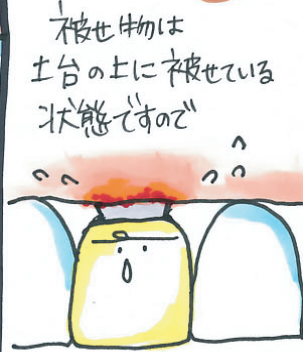 被せ物は
土台の上に被せている
状態ですので